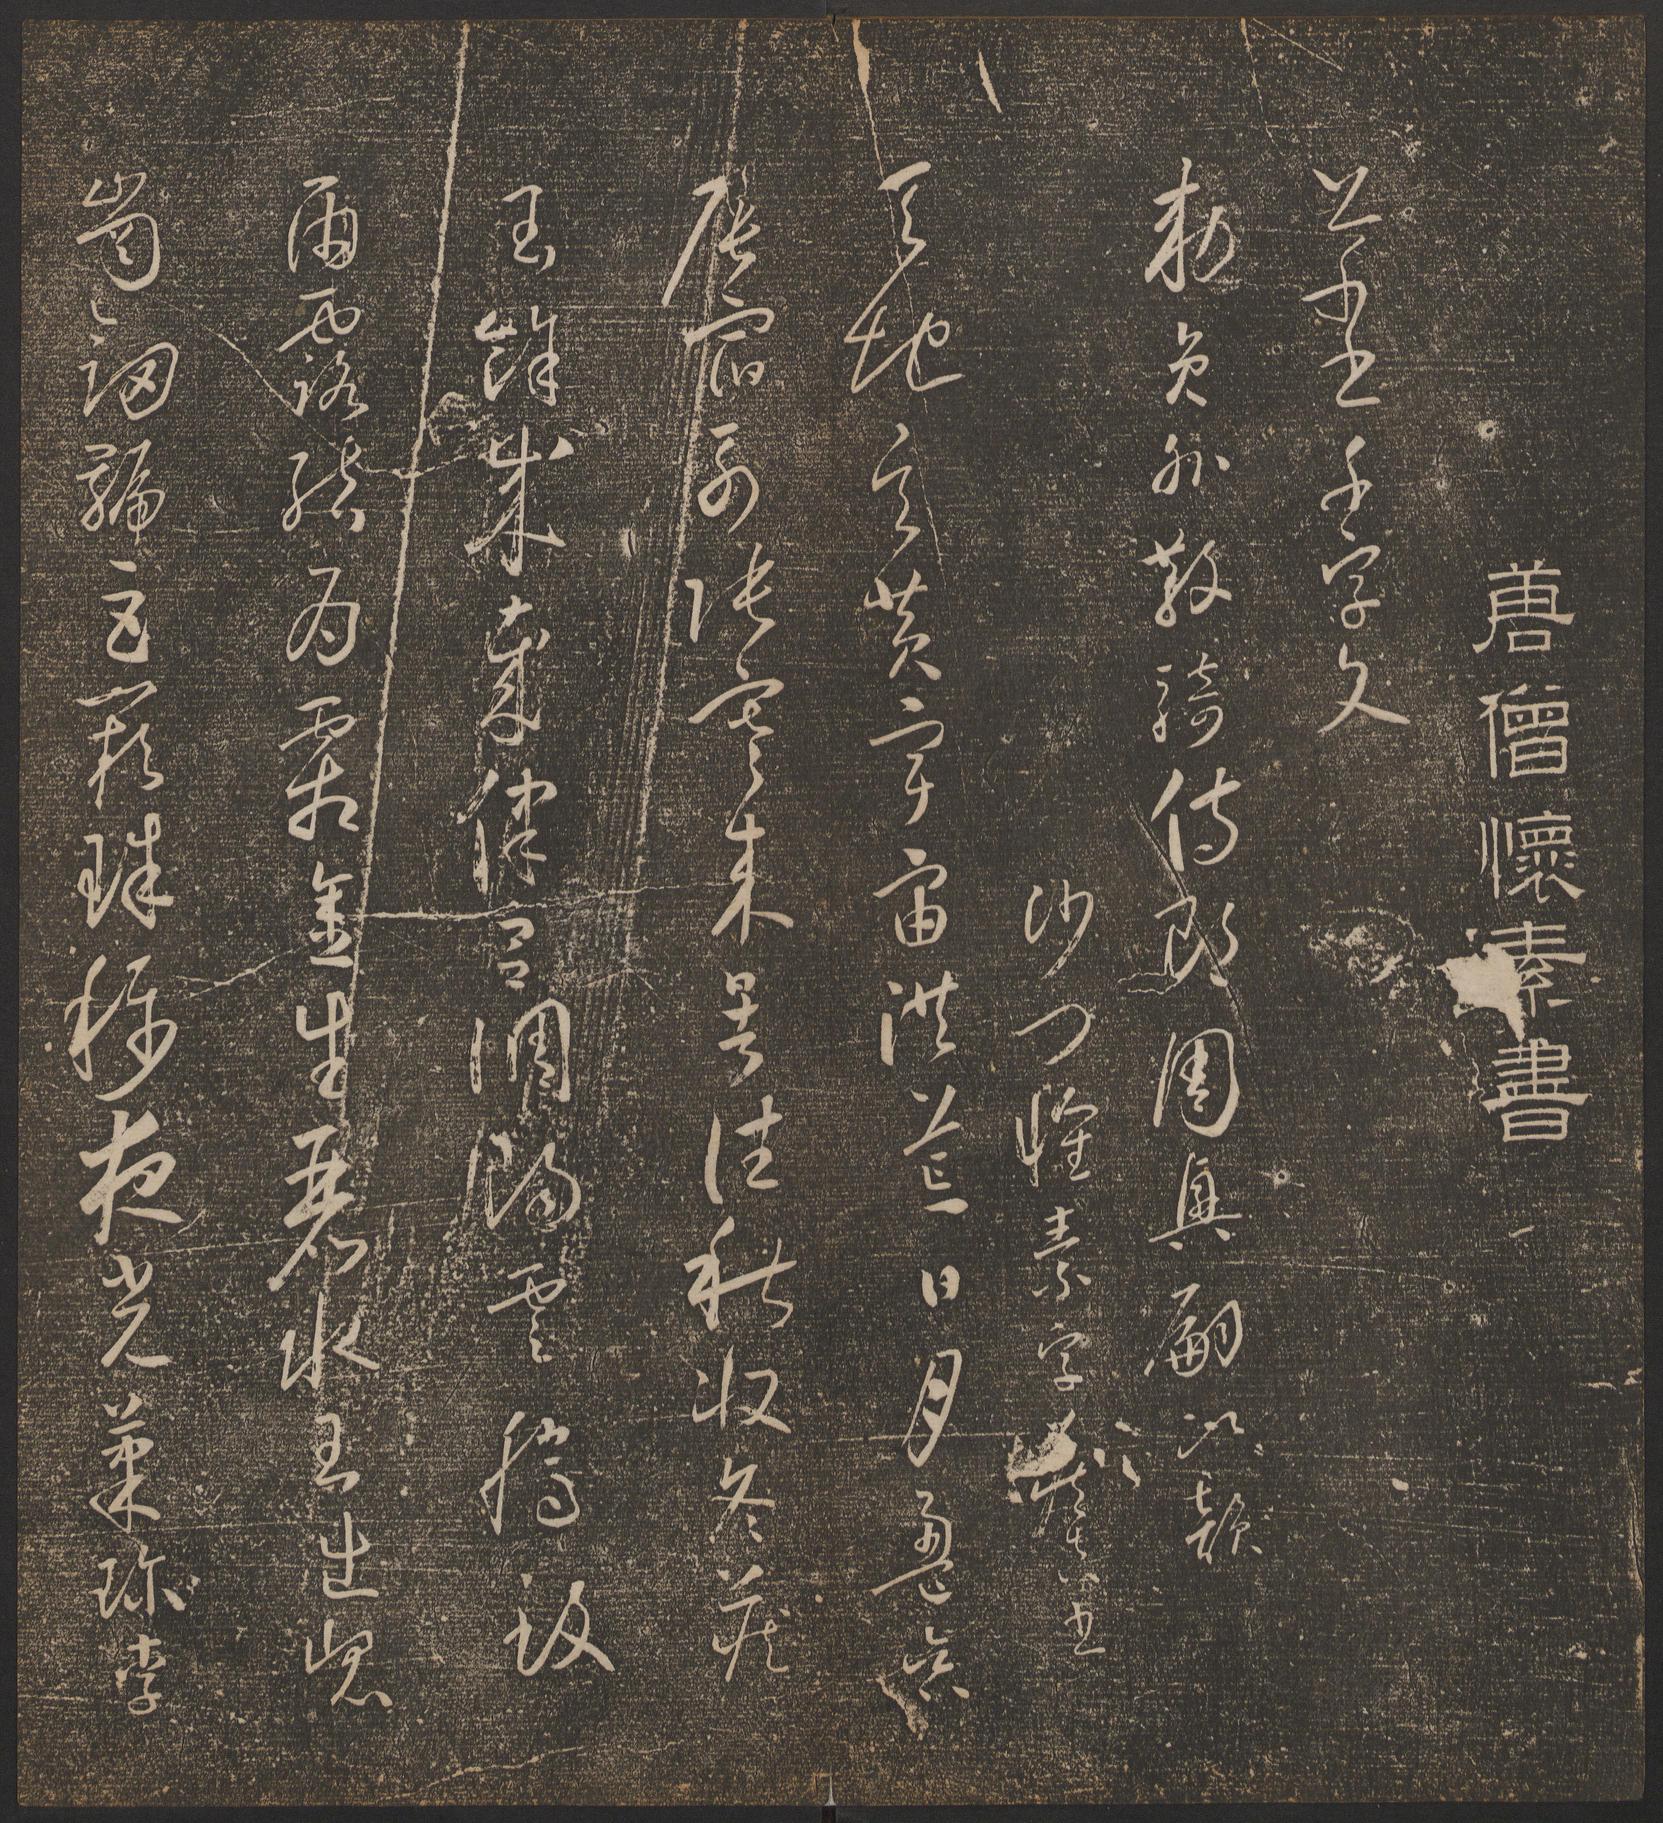 唐僧懷素書
草書千字文
勑員外散騎侍郎周興嗣次韻
沙門懷素字藏真書
天地玄黃宇宙洪荒日月盈昃
辰宿列張寒來暑往秋收冬藏
閏餘成歲律呂調陽雲騰致
雨露結為霜金生麗水玉出崑
崗劍號巨闕珠稱夜光菓珍李